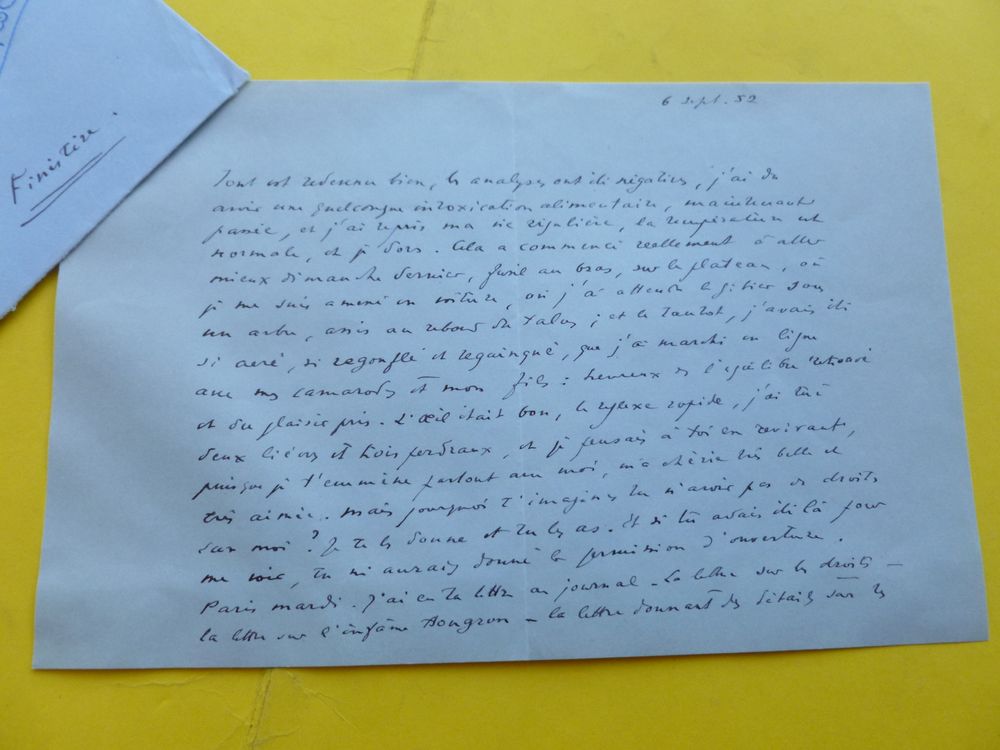 Finistère.
6 Sept. 52
Tout est redevenu bien, les analyses ont été négatives, j'ai du
avoir une quelconque intoxication alimentaire, maintenant
passée, et j'ai repris ma vie régulière, la température est
normale, et je dors. Cela a commencé réellement à aller
mieux dimanche dernier, fusil au bras, sur le plateau, où
je me suis amené en voiture, où j'ai attendu le gibier sous
un arbre, assis au rebord du talus ; et le tantôt, j'avais été
si aéré, si regonflé et regaingué, que j'ai marché en ligne
avec mes camarades et mon fils : heureux de l'équilibre retrouvé
et du plaisir pris. L'œil était bon, le réflexe rapide, j'ai tué
deux lièvres et trois perdreaux, et je pensais à toi en revivant,
puisque je t'emmène partout avec moi, ma chérie très belle et
très aimée. Mais pourquoi t'imagines tu n'avoir pas de droits
sur moi ? Je te les donne et tu les as. Et si tu avais été là pour
me voir, tu m'aurais donné la permission d'ouverture.
Paris mardi. J'ai eu ta lettre au journal - La lettre sur les droits -
la lettre sur l'infâme - la lettre donnant des détails sur les